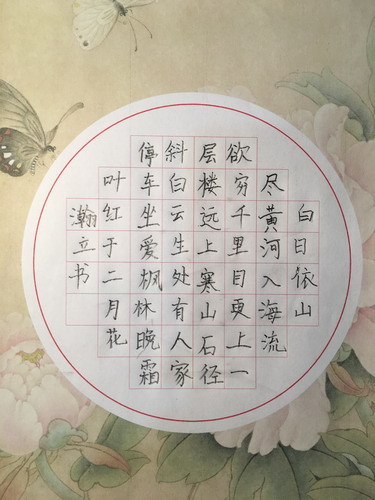 白日依山
尽黄河入海流
欲穷千里目更上一
层楼远上寒山石径
斜白云生处有人家
停车坐爱枫林晚霜
叶红于二月花
瀚立书